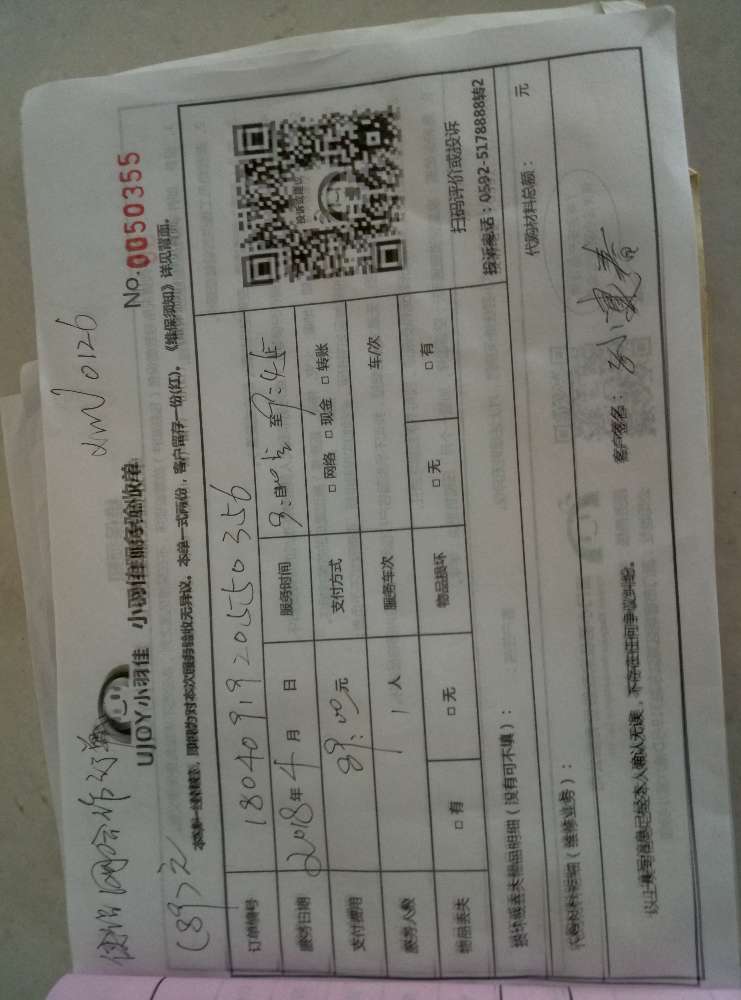 网合作订单
(89)元
No. 0050355
UJOY小羽佳 小羽佳服务验收单
本单一式两份，客户留存一份(红)。《维保须知》详见背面。
订单编号 180409192055 0356
服务日期 2018年4月 日 服务时间 9:00 至 9:45
支付费用 89.00元 支付方式 □网络 □现金 □转账
服务人数 1 人 服务车次 车/次
物品丢失 □有 □无 物品损坏 □无 □有
投诉或建议
扫码评价或投诉
投诉电话：0592-5178888转2
损坏或丢失物品明细（没有可不填）：
代购材料明细（维修业务）： 代购材料总额： 元
以上填写信息已经本人确认无误，不存在任何争议纠纷。 客户签名：